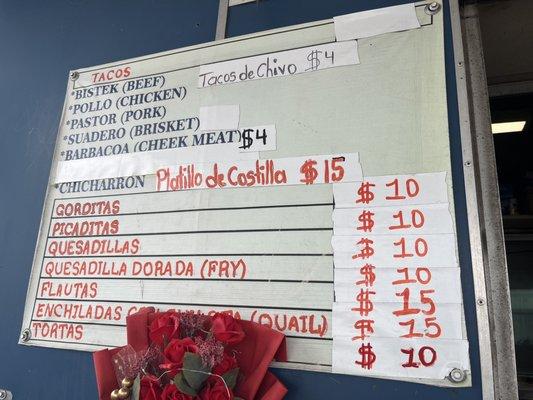 TACOS
*BISTEK (BEEF)
*POLLO (CHICKEN)
*PASTOR (PORK)
*SUADERO (BRISKET)
*BARBACOA (CHEEK MEAT) $4
*CHICHARRON
Tacos de Chivo $4
Platillo de Costilla $15
GORDITAS $10
PICADITAS $10
QUESADILLAS $10
QUESADILLA DORADA (FRY) $10
FLAUTAS $15
ENCHILADAS (QUAIL) $15
TORTAS $10